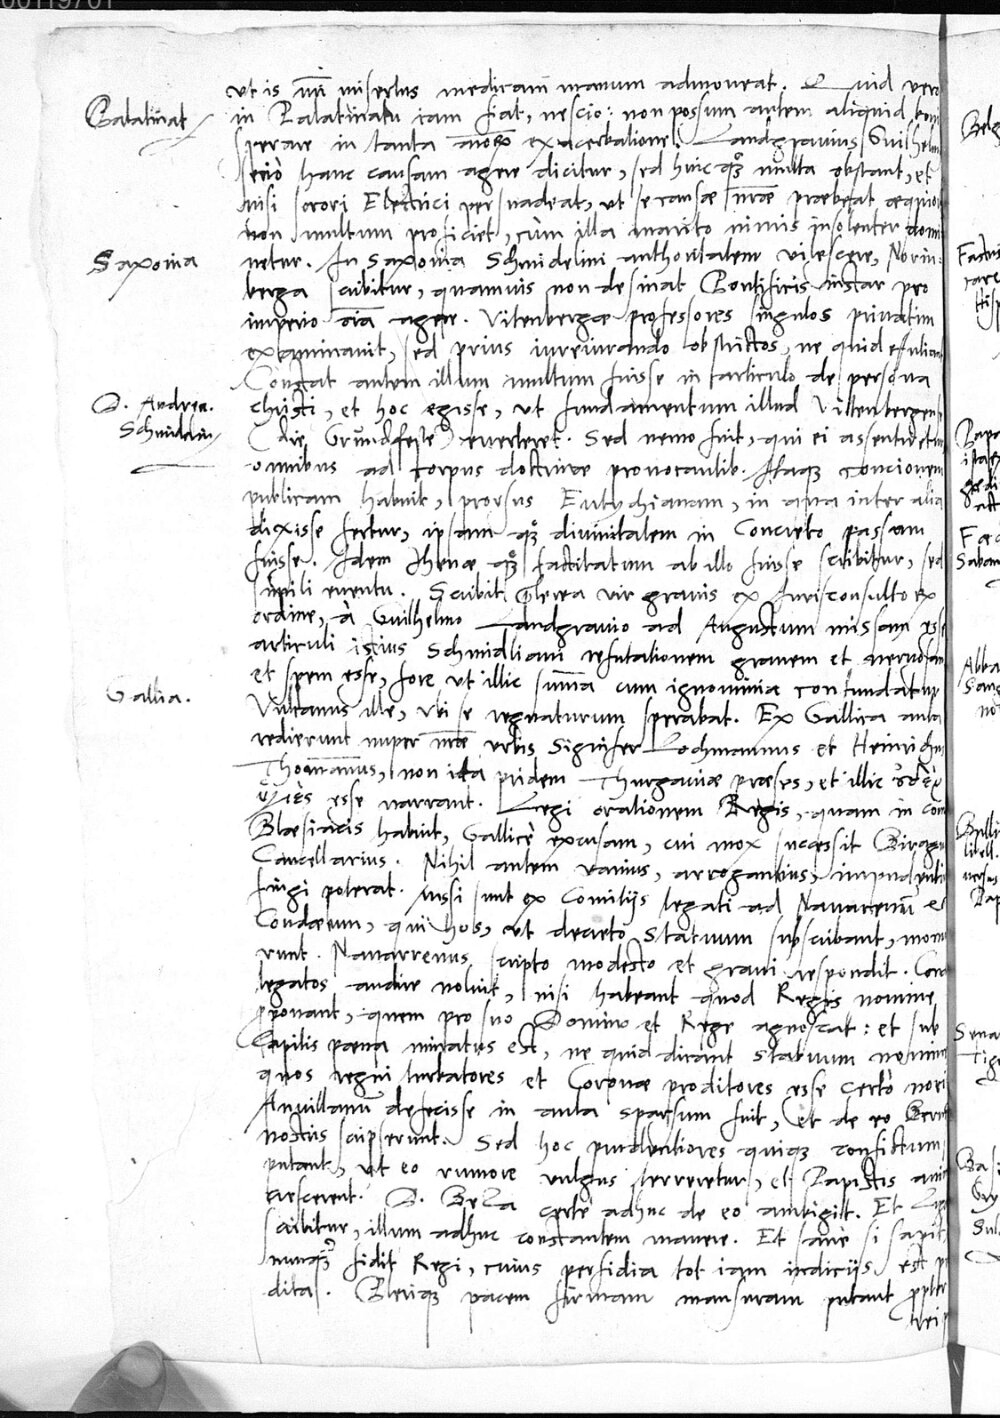 00119701
ut is nr̄i misertus medicam manum admoueat. Quid vero
Palatinat
in Palatinatu iam fiat, nescio: non possum autem aliquid boni
sperare in tanta exacerbatione. Landgrauius Guilhelm
seriò hanc causam agere dicitur, sed huic quoq; multa obstant, et
nisi sorori Electrici persuadeat, ut se causæ nr̄æ præbeat æquior
non multum proficiet, cùm illa marito nimis insolenter domi
Saxonia
netur. In Saxonia Schmidelini authoritatem vilescere, Norin
berga scribitur, quamuis non desinat Pontificis instar pro
imperio oīa agere. Vitenbergæ professores singulos priuatim
examinauit, sed prius iureiurando obstrictos, ne quid effutiant
Constat autem illum multum fuisse in articulo de persona
D. Andreæ.
Schmidelin
Christi, et hoc egisse, ut fundamentum illud Vittenbergense
(die Grundfeste) euerteret. Sed nemo fuit, qui ei assentiretur
omnibus ad corpus doctrinæ prouocantib. Itaq; concionem
publicam habuit, prorsus Eutychianam, in qua inter alia
dixisse fertur, ipsam quoq; diuinitatem in Concreto passam
fuisse. Idem Jhenæ quoq; factitatum ab illo fuisse scribitur, sed
simili euentu. Scribit præterea vir grauis ex Jurisconsulto
ordine, à Guilhelmo Landgrauio ad Augustum missam esse
articuli istius Schmidliani refutationem grauem et neruosam
et spem esse, fore ut illic summa cum ignominia confundatur
Gallia.
Vulcanus ille, ubi se regnaturum sperabat. Ex Gallica aula
redierunt nuper nr̄æ urbis Signifer Lochmannus et Heinrichus
Thomannus, non ita pridem Thurgauiæ præses, et illic
esse narrant. Legi orationem Regis, quam in com
Blæsiacis habuit, Gallicè excusam, cui mox successit Biragus
Cancellarius. Nihil autem vanius, arrogantius, impudentius
fingi poterat. Missi sunt ex Comitijs legati ad Nauarrenum et
Condæum, qui hos, ut decreto Statuum subscribant, monu
erunt. Nauarrenus scripto modesto et graui respondit. Con
legatos audire noluit, nisi habeant quod Regis nomine
pponant, quem pro suo Domino et Rege agnoscat: et sub
Capitis pœna minatus est, ne quid dicant statuum nomine
quos regni turbatores et Coronæ proditores esse certò norit
Anuillanū defecisse in aula sparsum fuit, et de eo Bernā
nostris scripserunt. Sed hoc prudentiores quiq; confictum
putant, ut eo rumore vulgus terreretur, et Papistis animi
crescerent. D. Beza certè adhuc de eo ambigit. Et
scribitur, illum adhuc constantem manere. Et sanè si sapit
nunq; fidit Regi, cuius perfidia tot iam indicijs est pro
dita. Pleriq; pacem firmam mansuram putant propter
Belg
Factus
Hisp
Papa
Sabau
Abba
Sang
Bulli
libell.
versus
Pap
Sena
Tig
Basi
Gry
Sul